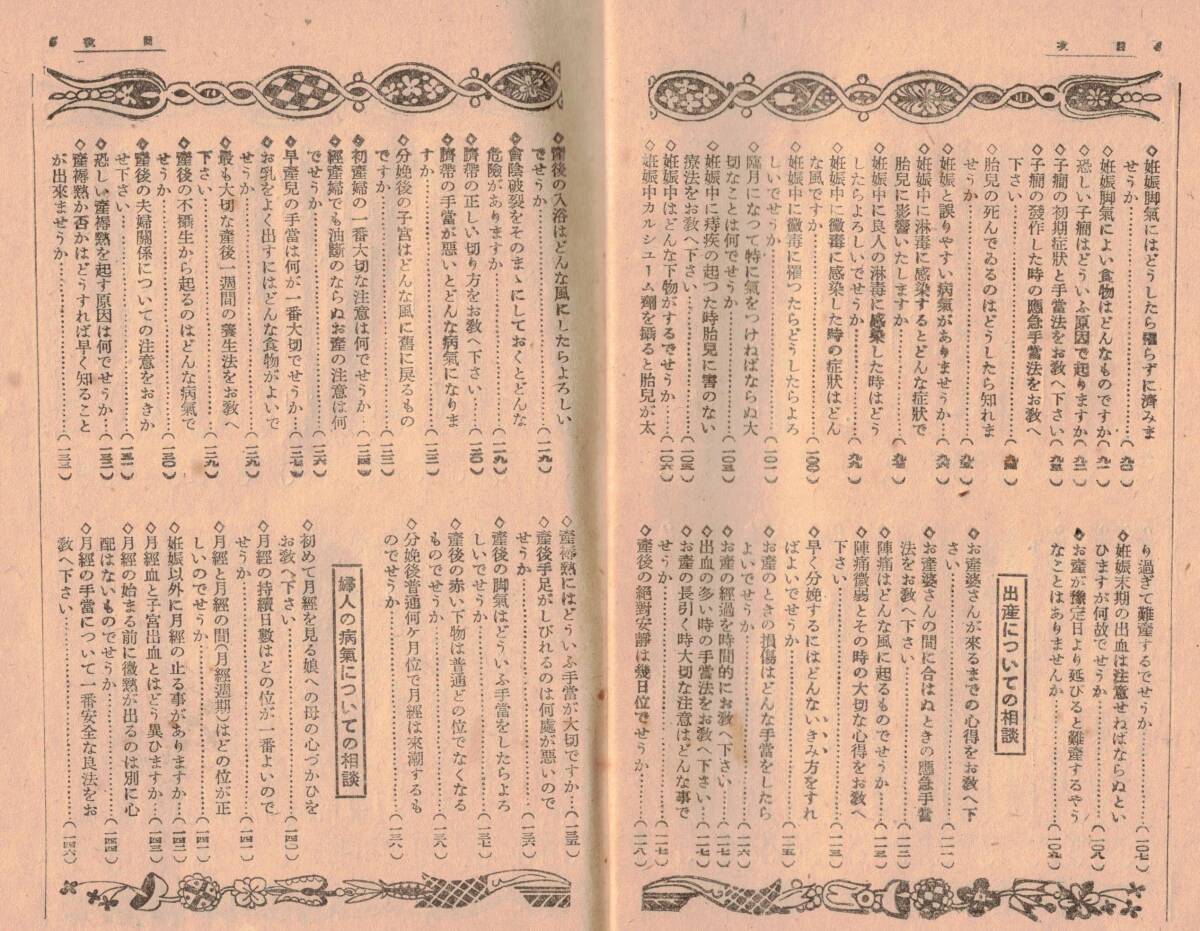 目次
◇妊娠脚氣にはどうしたら罹らずに済みま
せうか……(九〇)
◇妊娠脚氣によい食物はどんなものですか(九一)
◇恐しい子癇はどういふ原因で起りますか(九二)
◇子癇の初期症狀と手當法をお敎へ下さい(九三)
◇子癇の發作した時の應急手當法をお敎へ
下さい……(九四)
◇胎兒の死んでゐるのはどうしたら知れま
せうか……
◇妊娠と誤りやすい病氣がありませうか…(九六)
◇妊娠中に淋毒に感染するとどんな症狀で
胎兒に影響いたしますか……(九七)
◇妊娠中に良人の淋毒に感染した時はどう
したらよろしいでせうか……(九九)
◇妊娠中に黴毒に感染した時の症狀はどん
な風ですか……(一〇〇)
◇妊娠中に黴毒に罹つたらどうしたらよろ
しいでせうか……(一〇一)
◇臨月になつて特に氣をつけねばならぬ大
切なことは何でせうか……(一〇三)
◇妊娠中に痔疾の起つた時胎兒に害のない
療法をお敎へ下さい……
◇妊娠中はどんな下物がするでせうか……(一〇六)
◇妊娠中カルシューム劑を攝ると胎兒が太
り過ぎて難產するでせうか……(一〇七)
◇妊娠末期の出血は注意せねばならぬとい
ひますが何故でせうか……(一〇八)
◇お產が豫定日より延びると難產するやう
なことはありませんか……(一〇九)
出産についての相談
◇お產婆さんが來るまでの心得をお敎へ下
さい……(一一一)
◇お產婆さんの間に合はぬときの應急手當
法をお敎へ下さい……(一一二)
◇陣痛はどんな風に起るものでせうか……(一一三)
◇陣痛微弱とその時の大切な心得をお敎へ
下さい……
◇早く分娩するにはどんないきみ方をすれ
ばよいでせうか……(一一五)
◇お產のときの損傷はどんな手當をしたら
よいでせうか……(一一六)
◇お產の經過を時間的にお敎へ下さい……(一一七)
◇出血の多い時の手當法をお敎へ下さい…(一一七)
◇お產の長引く時大切な注意はどんな事で
せうか……(一一七)
◇產後の絕對安靜は幾日位でせうか……(一一八)
目次 5
◇產後の入浴はどんな風にしたらよろしい
でせうか……(一一九)
◇會陰破裂をそのまゝにしておくとどんな
危險がありますか……(一一九)
◇臍帶の正しい切り方をお敎へ下さい……(一二〇)
◇臍帶の手當が悪いとどんな病氣になりま
すか……
◇分娩後の子宮はどんな風に舊に戾るもの
ですか……
◇初產婦の一番大切な注意は何でせうか…(一二四)
◇經產婦でも油斷のならぬお產の注意は何
でせうか……(一二六)
◇早產兒の手當は何が一番大切でせうか…(一二七)
◇お乳をよく出すにはどんな食物がよいで
せうか……(一二九)
◇最も大切な產後一週間の養生法をお敎へ
下さい……(一二九)
◇產後の不攝生から起るのはどんな病氣で
せうか……(一三〇)
◇產後の夫婦關係についての注意をおきか
せ下さい……(一三一)
◇恐しい產褥熱を起す原因は何でせうか…(一三二)
◇產褥熱か否かはどうすれば早く知ること
が出來ませうか……(一三三)
◇產褥熱にはどういふ手當が大切ですか…(一三五)
◇產後手足がしびれるのは何處が悪いので
せうか……(一三六)
◇產後の脚氣はどういふ手當をしたらよろ
しいでせうか……(一三七)
◇產後の赤い下物は普通どの位でなくなる
ものでせうか……(一三八)
◇分娩後普通何ケ月位で月經は來潮するも
のでせうか……(一三八)
婦人の病氣についての相談
◇初めて月經を見る娘への母の心づかひを
お敎へ下さい……
◇月經の持續日數はどの位が一番よいので
せうか……(一四一)
◇月經と月經の間(月經週期)はどの位が正
しいのでせうか……(一四一)
◇妊娠以外に月經の止る事がありますか…
◇月經血と子宮出血とはどう異ひますか…(一四三)
◇月經の始まる前に微熱が出るのは別に心
配はないものでせうか……(一四四)
◇月經の手當について一番安全な良法をお
敎へ下さい……(一四六)